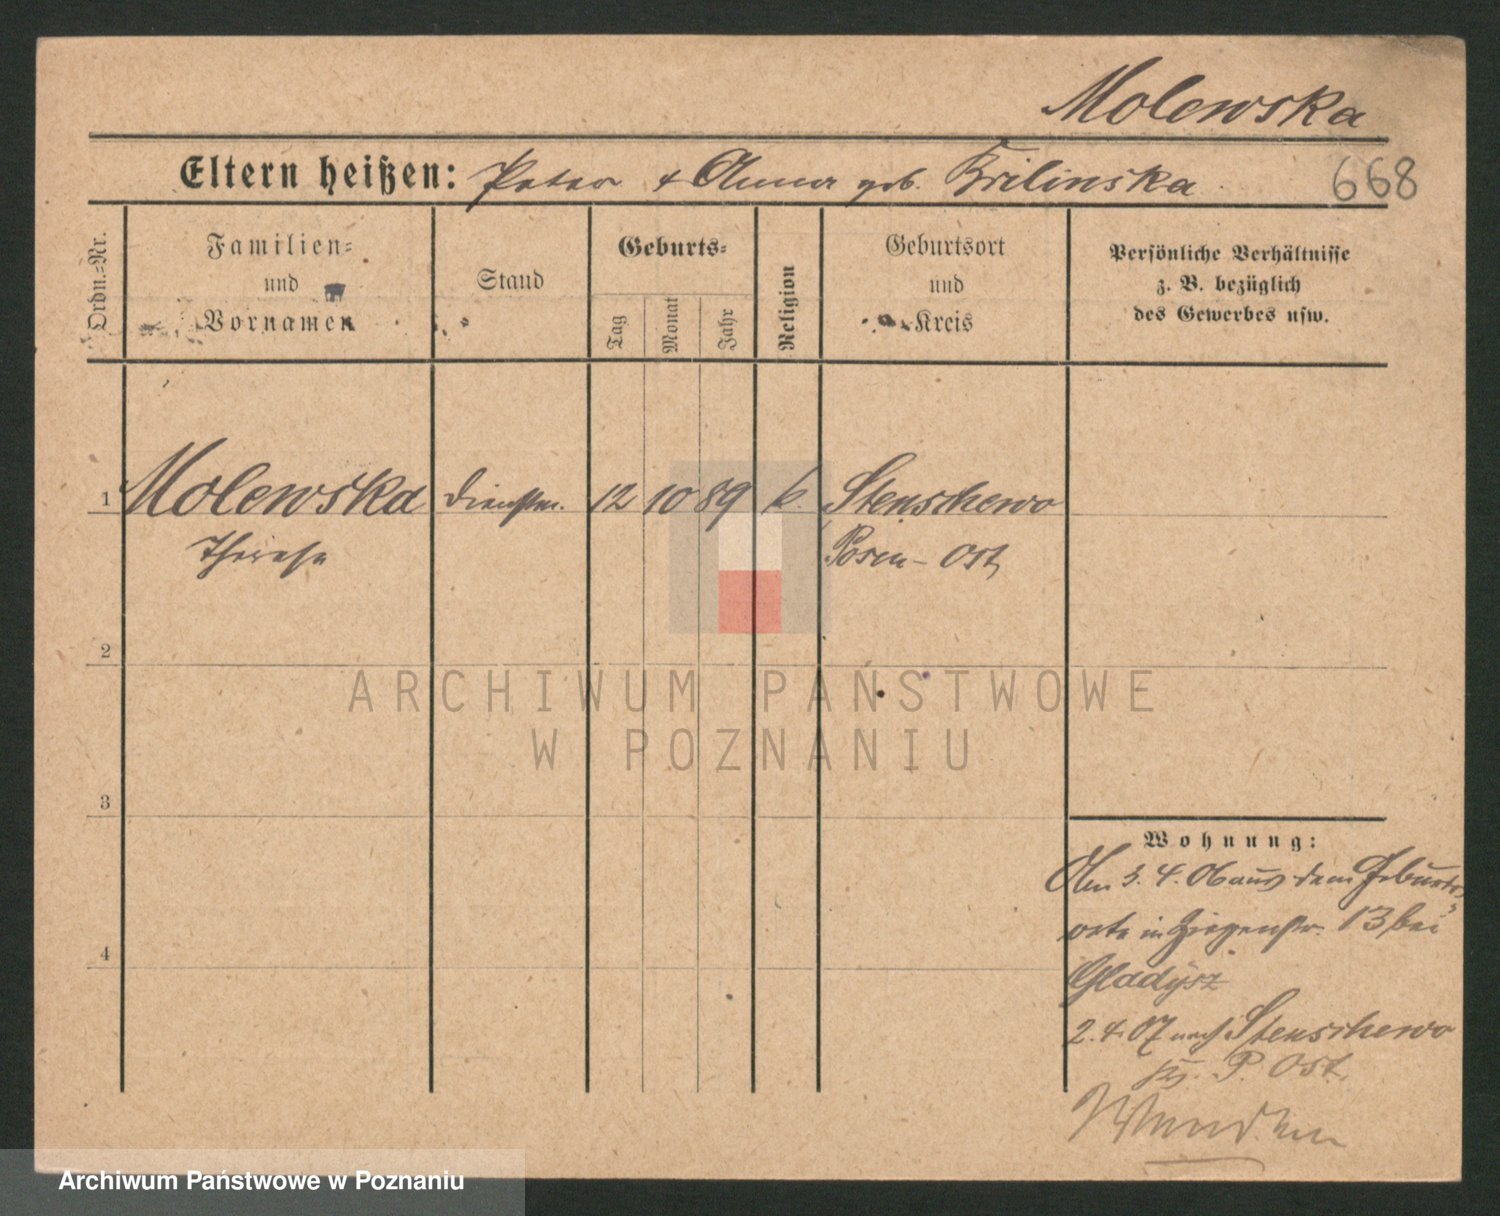 Molewska
Eltern heißen: Peter + Anna geb. Brilinska
668
Ordn.=Nr.
Familien=
und
Vornamen
Stand
Geburts=
Tag
Monat
Jahr
Religion
Geburtsort
und
Kreis
Persönliche Verhältnisse
z. B. bezüglich
des Gewerbes usw.
1 Molewska Dienstm. 12 10 89 k. Stenschewo
Therese Posen-Ost
2
3
4
ARCHIWUM PAŃSTWOWE
W POZNANIU
Wohnung:
Am 3. 4. 06 aus dem Geburts=
orte in Ziegenstr. 13 bei
Gladysz
2. 4. 07 nach Stenschewo
P. Ost.
Wenden
Archiwum Państwowe w Poznaniu